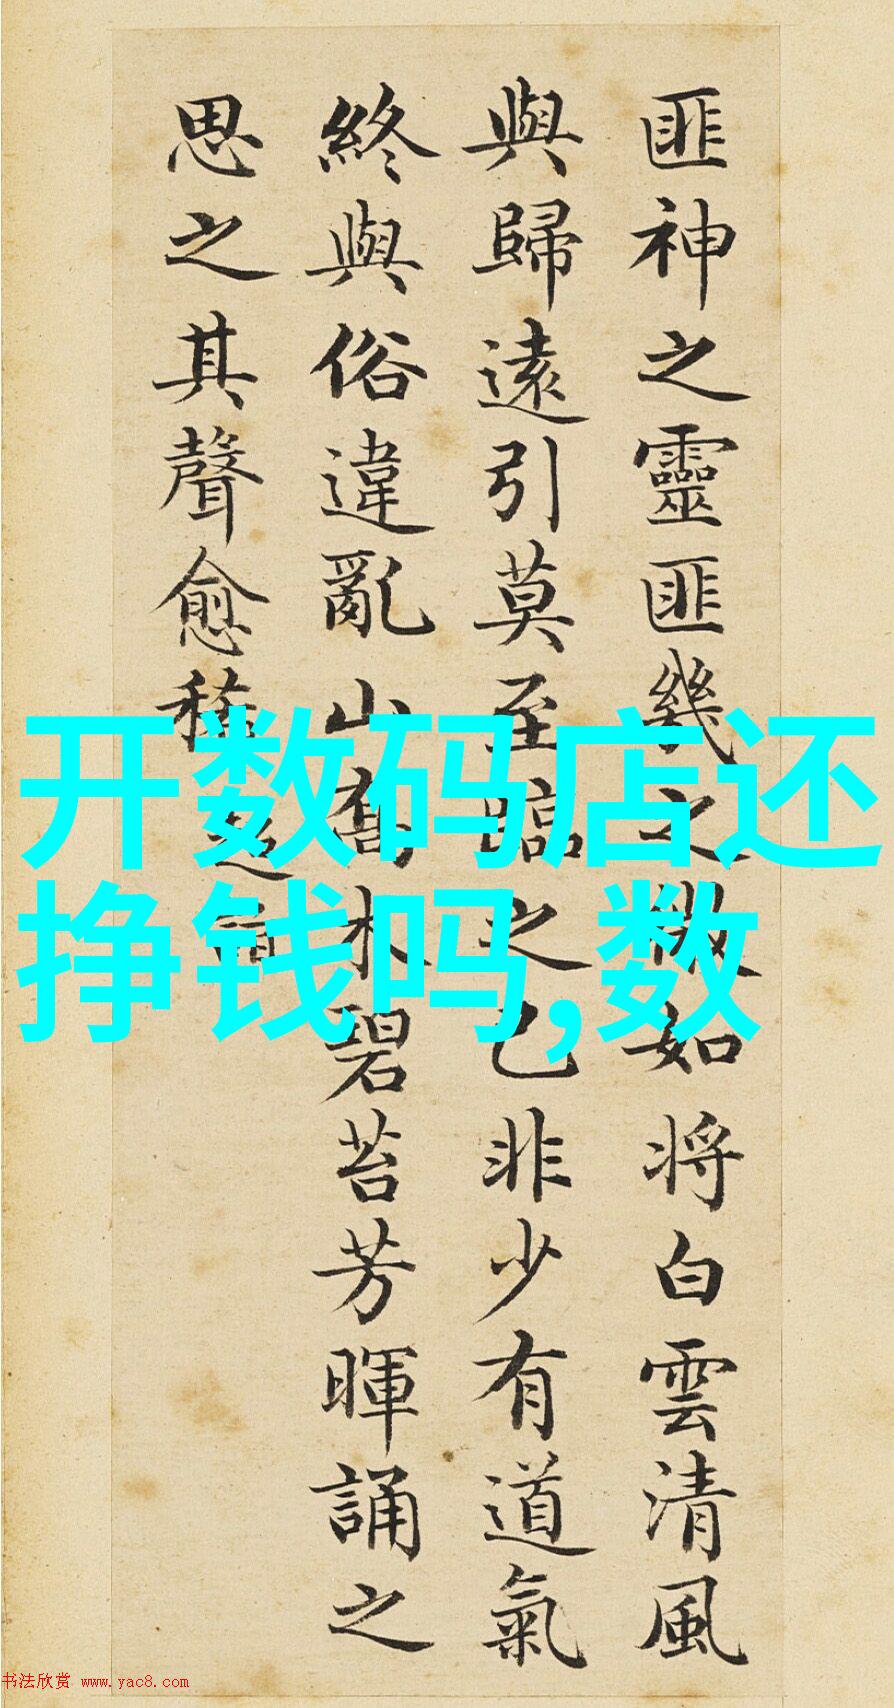 匪神之靈匪幾之微如将白雲清風
與歸遠引莫至臨之已非少有道氣
終與俗違亂山喬木碧苔芳暉誦之
思之其聲愈稀
开数码店还
挣钱吗,数
书法欣赏 www.yac8.com